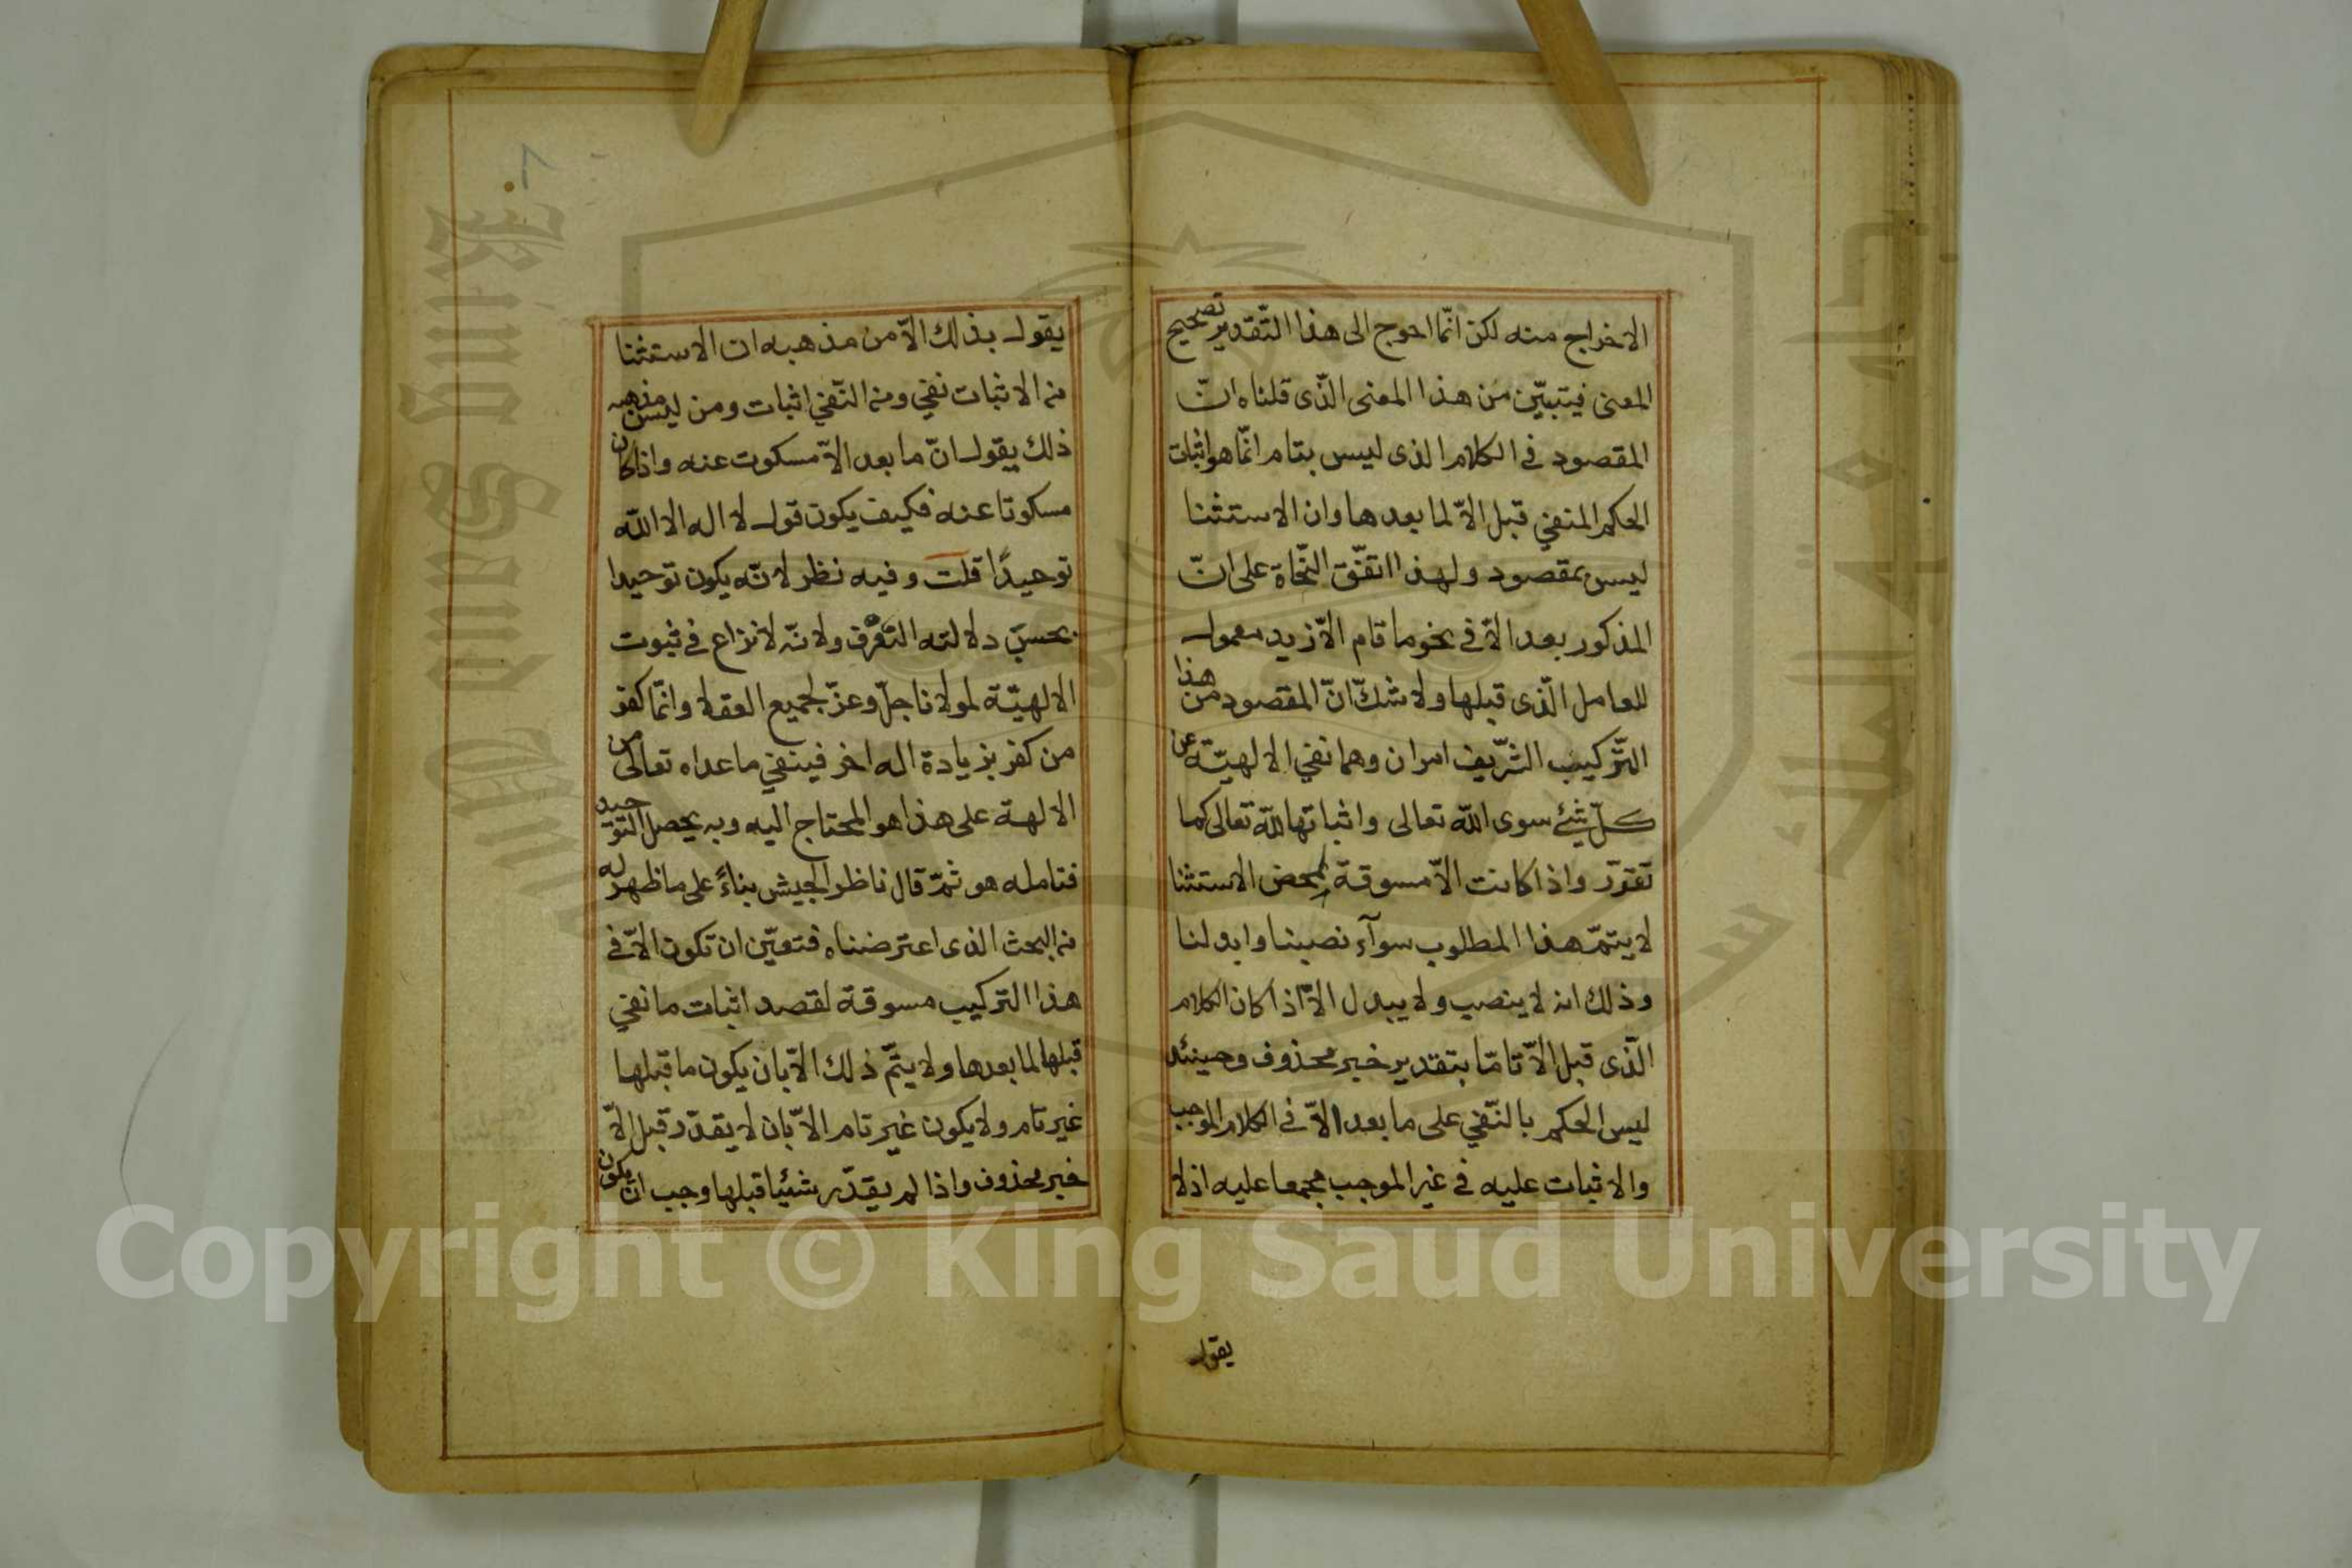 الاخراج منه لكن انّما احوج الى هذا التّقدير تصحيح
المعنى فيتبيّن من هذا المعنى الّذى قلناه انّ
المقصود في الكلام الذى ليس بتام انّما هو اثبات
الحكم المنفي قبل الاّ لما بعدها وان الاستثنا
ليس بمقصود ولهذا اتفّق النّحاة على انّ
المذكور بعد الاّ في نحو ما قام الاّ زيد معمول
للعامل الّذى قبلها ولا شكّ انّ المقصود من هذا
التّركيب الشّريف امران وهما نفي الالهيّة عن
كلّ شئ سوى اللّه تعالى واثباتها للّه تعالى كما
تقرّر واذا كانت الاّ مسوقة لمحض الاستثنا
لا يتمّ هذا المطلوب سوآء نصبنا وابدلنا
وذلك انه لا ينصب ولا يبدل الاّ اذا كان الكلام
الّذى قبل الاّ تامّا بتقدير خبر محذوف وحينئذ
ليس الحكم بالنّفي على ما بعد الاّ في الكلام الموجب
والاثبات عليه في غير الموجب مجمعا عليه اذ لا
يقول
٨
يقول بذلك الاّ من مذهبه ان الاستثنا
من الاثبات نفي ومن النّفي اثبات ومن ليس مذهبه
ذلك يقول انّ ما بعد الاّ مسكوت عنه واذا كان
مسكوتا عنه فكيف يكون قول لا اله الا اللّه
توحيدًا قلت وفيه نظر لانّه يكون توحيدا
بحسب دلالته العّرف ولانّه لا نزاع في ثبوت
الالهيّة لمولانا جلّ وعزّ لجميع العقلا وانّما كفر
من كفر بزيادة اله اخر فينفي ما عداه تعالى من
الالهة على هذا هو المحتاج اليه وبه يحصل التوحيد
فتامله هو ثمّ قال ناظر الجيش بناءً على ما ظهر له
من البحث الذى اعترضناه فتعيّن ان تكون الاّ في
هذا التركيب مسوقة لقصد اثبات ما نفي
قبلها لما بعدها ولا يتمّ ذلك الاّ بان يكون ما قبلها
غير تام ولا يكون غير تام الاّ بان لا يقدّر قبل الاّ
خبر محذوف واذا لم يقدّر شئيا قبلها وجب ان يكون
Copyright © King Saud University